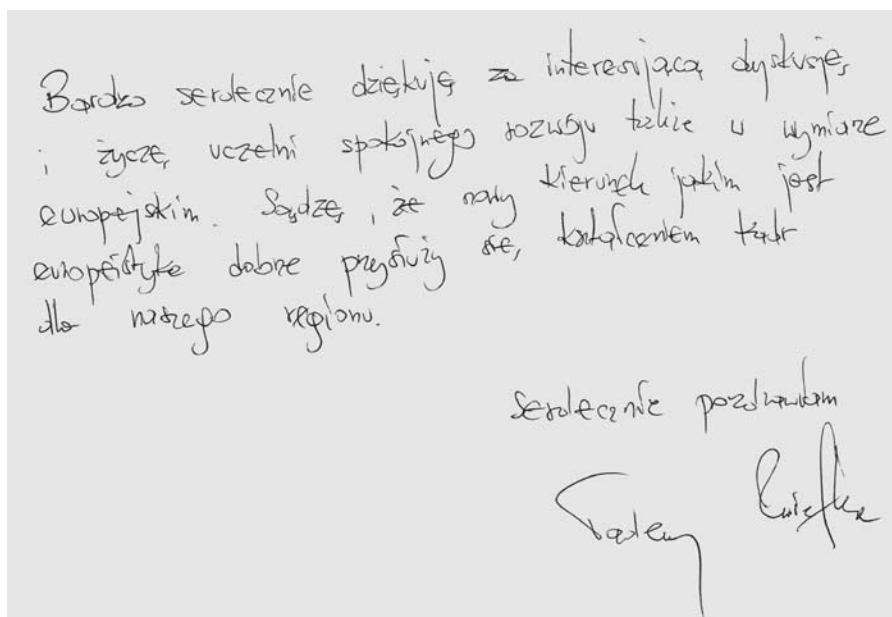 Bardzo serdecznie dziękuję za interesującą dyskusję,
i życzę, uczelni spokojnego rozwoju także w wymiarze
europejskim. Sądzę, że nowy kierunek jakim jest
europeistyka dobrze przysłuży się, kształceniem kadr
dla naszego regionu.
Serdecznie pozdrawiam
Tadeusz